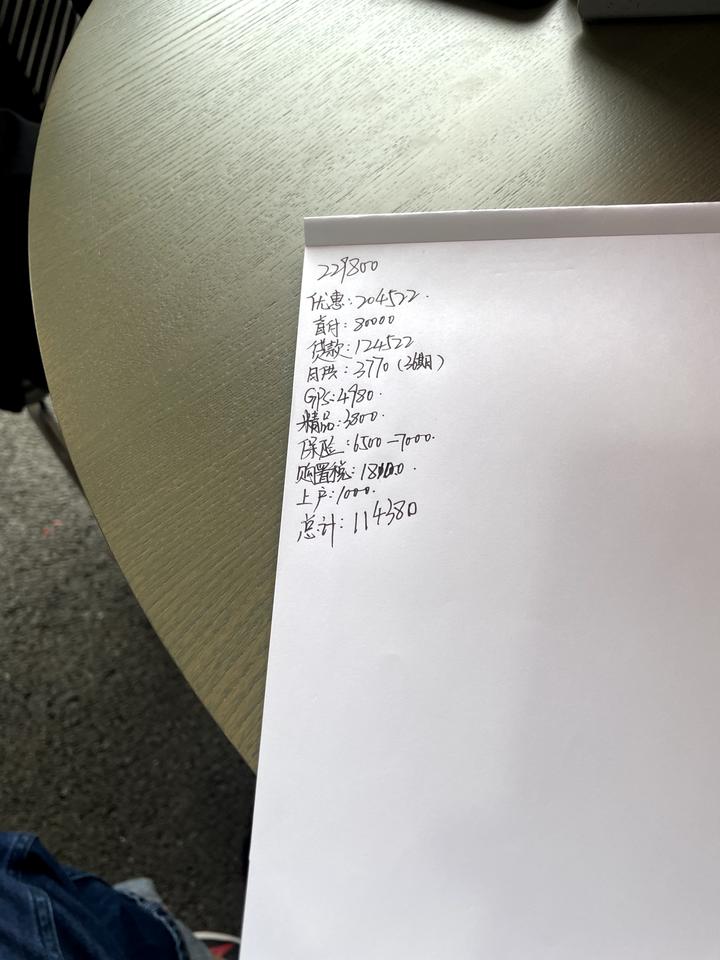 229800
优惠:204522.
首付:80000
贷款:124522
月供:3770(36期)
GPS:4980.
精品:3800.
保险:6500-7000.
购置税:18100.
上户:1000.
总计:114380